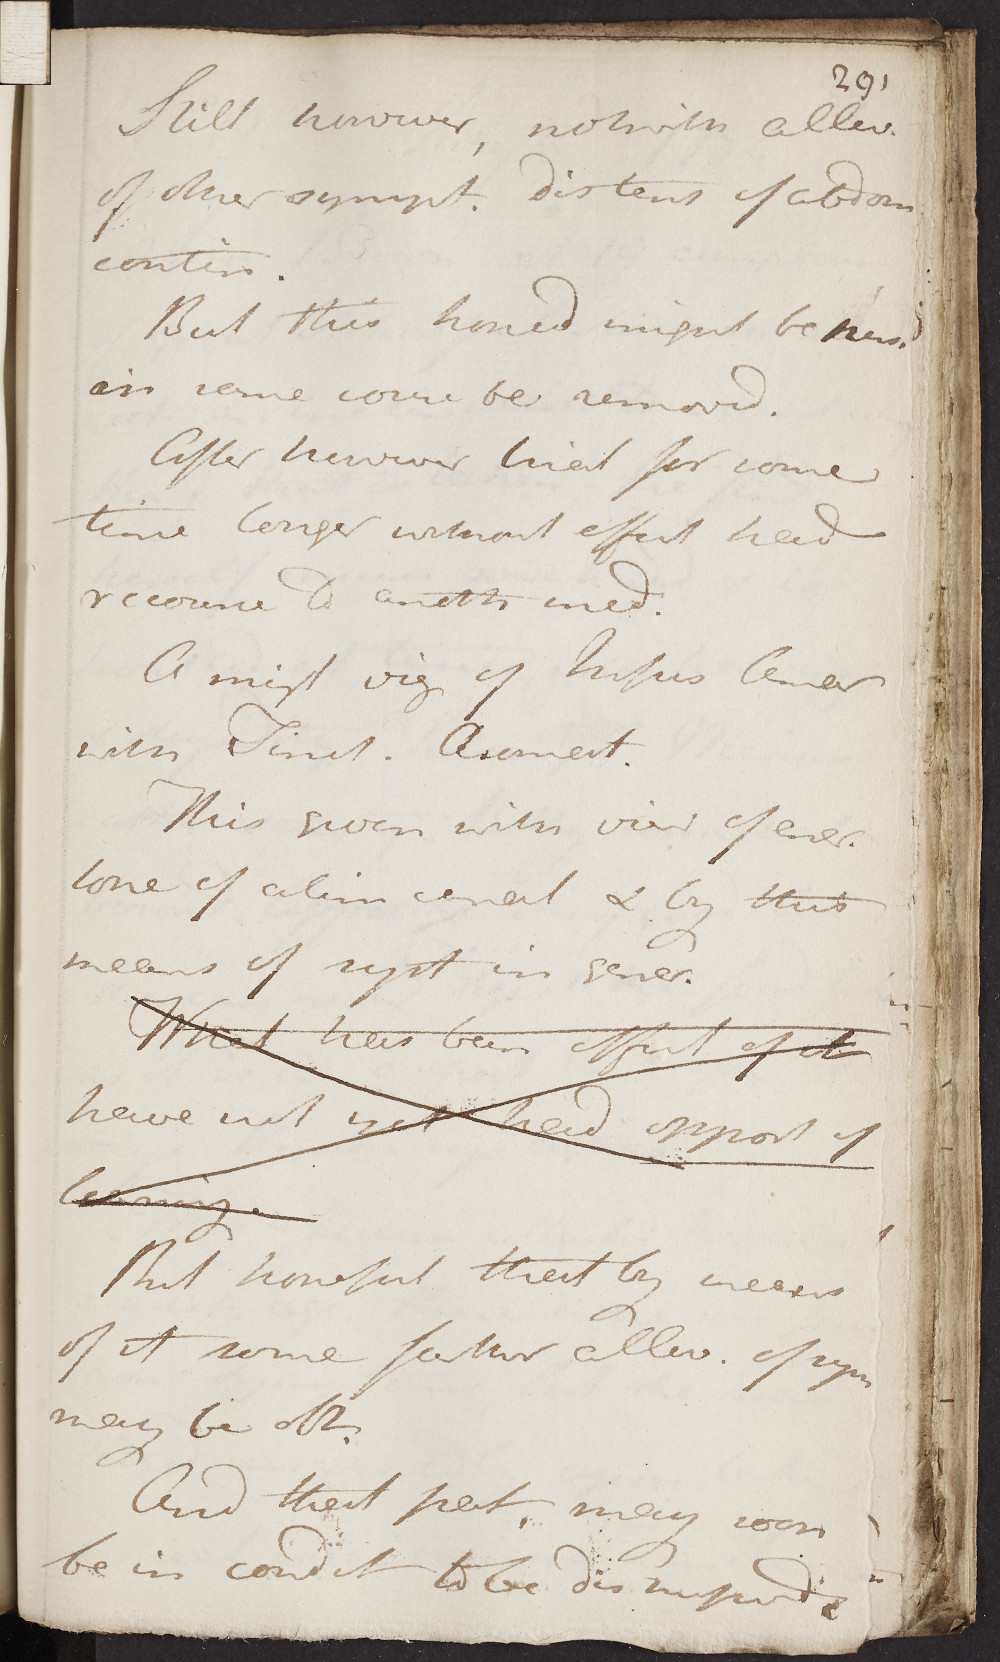 291
Still however, notwith allev.
of other sympt. distens of abdom
contin.
But this hoped might be
in same course be removed.
After however tried for some
time longer without effect had
recourse to anoth med.
A mixt viz of Infus Amar
with Tinct. Aromat.
This given with view of
tone of alim canal & by this
means of syst in gener.
What has been effect of it
have not yet had opport of
learning.
But hopeful that by means
of it some farther allev. of sym
may be obt.
And that pat. may soon
be in condit to be dismissed